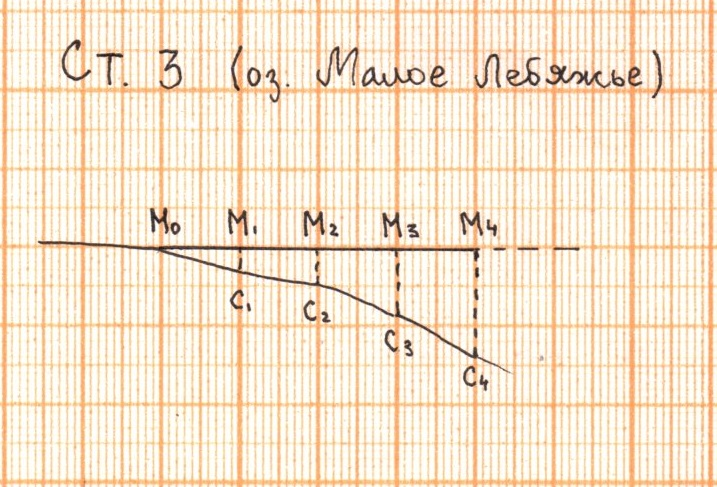 Ст. 3 (оз. Малое Лебяжье)
M₀ M₁ M₂ M₃ M₄
C₁ C₂ C₃ C₄